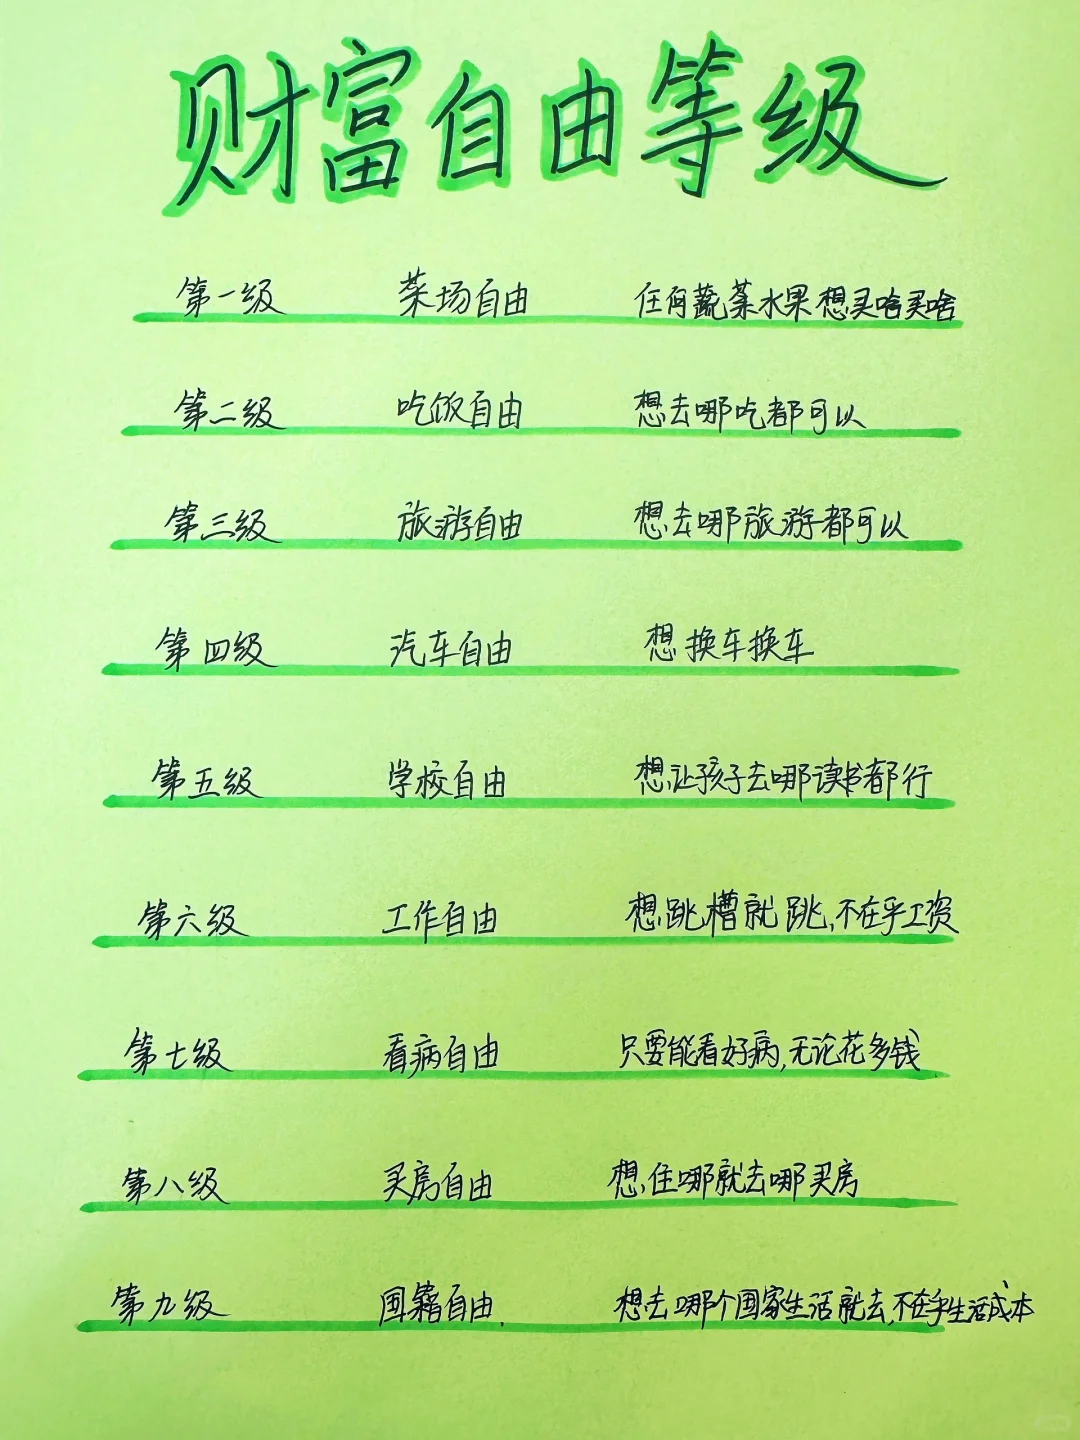 财富自由等级
第一级 菜场自由 任何蔬菜水果想买啥买啥
第二级 吃饭自由 想去哪吃都可以
第三级 旅游自由 想去哪旅游都可以
第四级 汽车自由 想换车换车
第五级 学校自由 想让孩子去哪读书都行
第六级 工作自由 想跳槽就跳,不在乎工资
第七级 看病自由 只要能看好病,无论花多钱
第八级 买房自由 想住哪就去哪买房
第九级 国籍自由. 想去哪个国家生活就去,不在乎生活成本